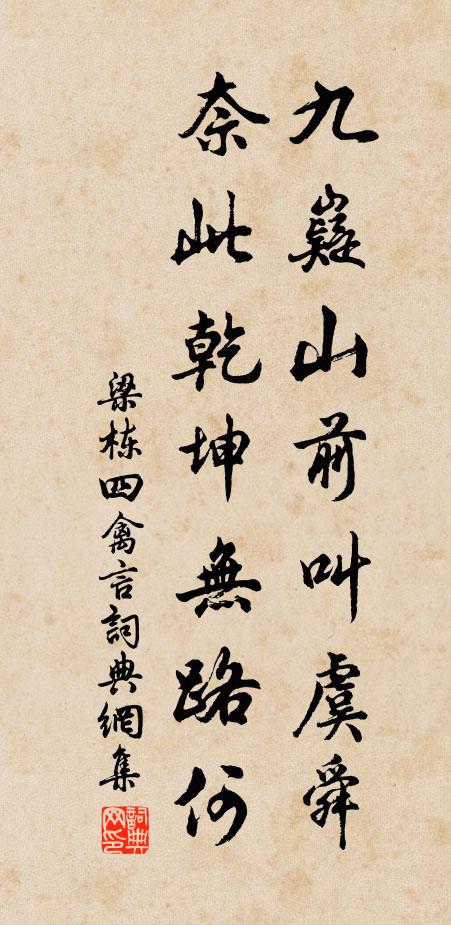 九嶷山前叫虞舜
奈此乾坤無路何
梁栋四禽言詞典網集
詞典网印